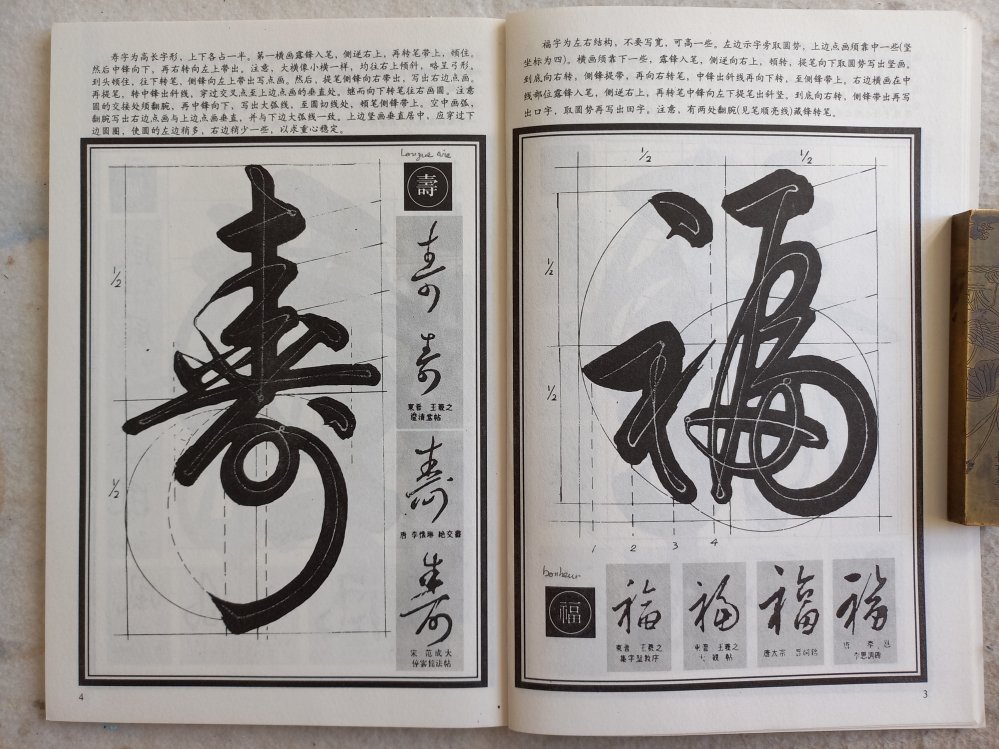 寿字为高长字形，上下各占一半。第一横画露锋入笔，侧逆右上，再转笔带上，顿住，
然后中锋向下，再右转向左上带出。注意，大横像小横一样，均往右上倾斜，略呈弓形，
到头顿住，往下转笔，侧锋向左上带出写点画。然后，提笔侧锋向右带出，写出右边点画，
再提笔，转中锋出斜线，穿过交叉点至上边点画的垂直处，继而向下转笔往右画圆，注意
圆的交接处须翻腕，再中锋向下，写出大弧线，至圆切线处，顿笔侧锋带上。空中画弧，
翻腕写出右边点画与上边点画垂直，并与下边大弧线一致。上边竖画垂直居中，应穿过下
边圆圈，使圆的左边稍多，右边稍少一些，以求重心稳定。
Longue vie
壽
1/2
1/2
寿
東晋 王羲之
澄清堂帖
唐 李懷琳 绝交書
宋 范成大
4
福字为左右结构，不要写宽，可高一些，左边示字旁取圆势，上边点画须靠中一些(竖
坐标为四)。横画须靠下一些，露锋入笔，侧逆向右上，顿转，提笔向下取圆势写出竖画，
到底向右转，侧锋提带，再向右转笔，中锋出斜线再向下转，至侧锋带上，右边横画在中
线部位露锋入笔，侧逆右上，再转笔中锋向左下提笔出斜竖，到底向右转，侧锋带出再写
出口字，取圆势再写出田字，注意，有两处翻腕(见笔顺亮线)藏锋转笔。
1/2
1/2
1/2
1/2
福
1 2 3 4
bonheur
福
東晋 王羲之
集字聖教序
東晋 王羲之
唐太宗
唐 李邕
李思訓碑
3